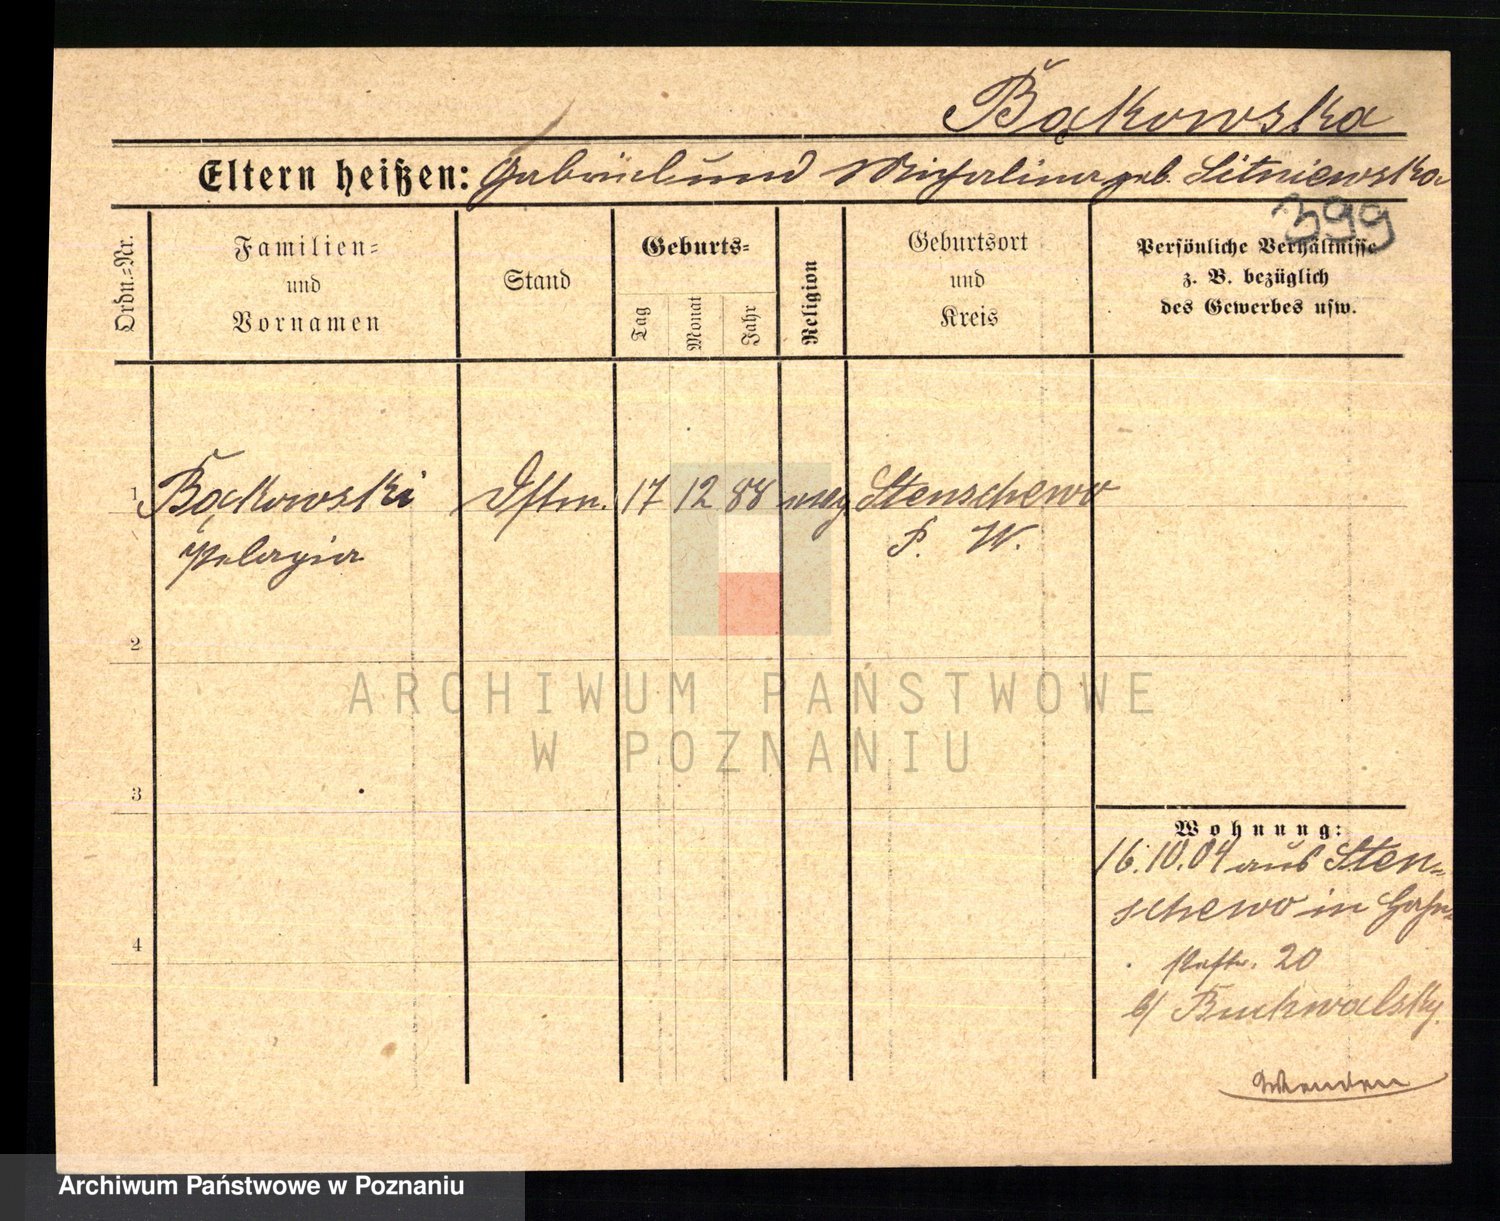 Bąkowska
Eltern heißen: Gabriel und Michalina geb. Sitniewska
399
Ordn.-Nr.
Familien-
und
Vornamen
Stand
Geburts-
Tag
Monat
Jahr
Religion
Geburtsort
und
Kreis
Persönliche Verhältnisse
z. B. bezüglich
des Gewerbes usw.
1 Bąkowski 17 12 88 Stenschewo
Pelagia P. W.
2
3
4
Wohnung:
16.10.04 aus Sten-
schewo in
20
b/ Buchwalsky.
Wenden
ARCHIWUM PAŃSTWOWE
W POZNANIU
Archiwum Państwowe w Poznaniu